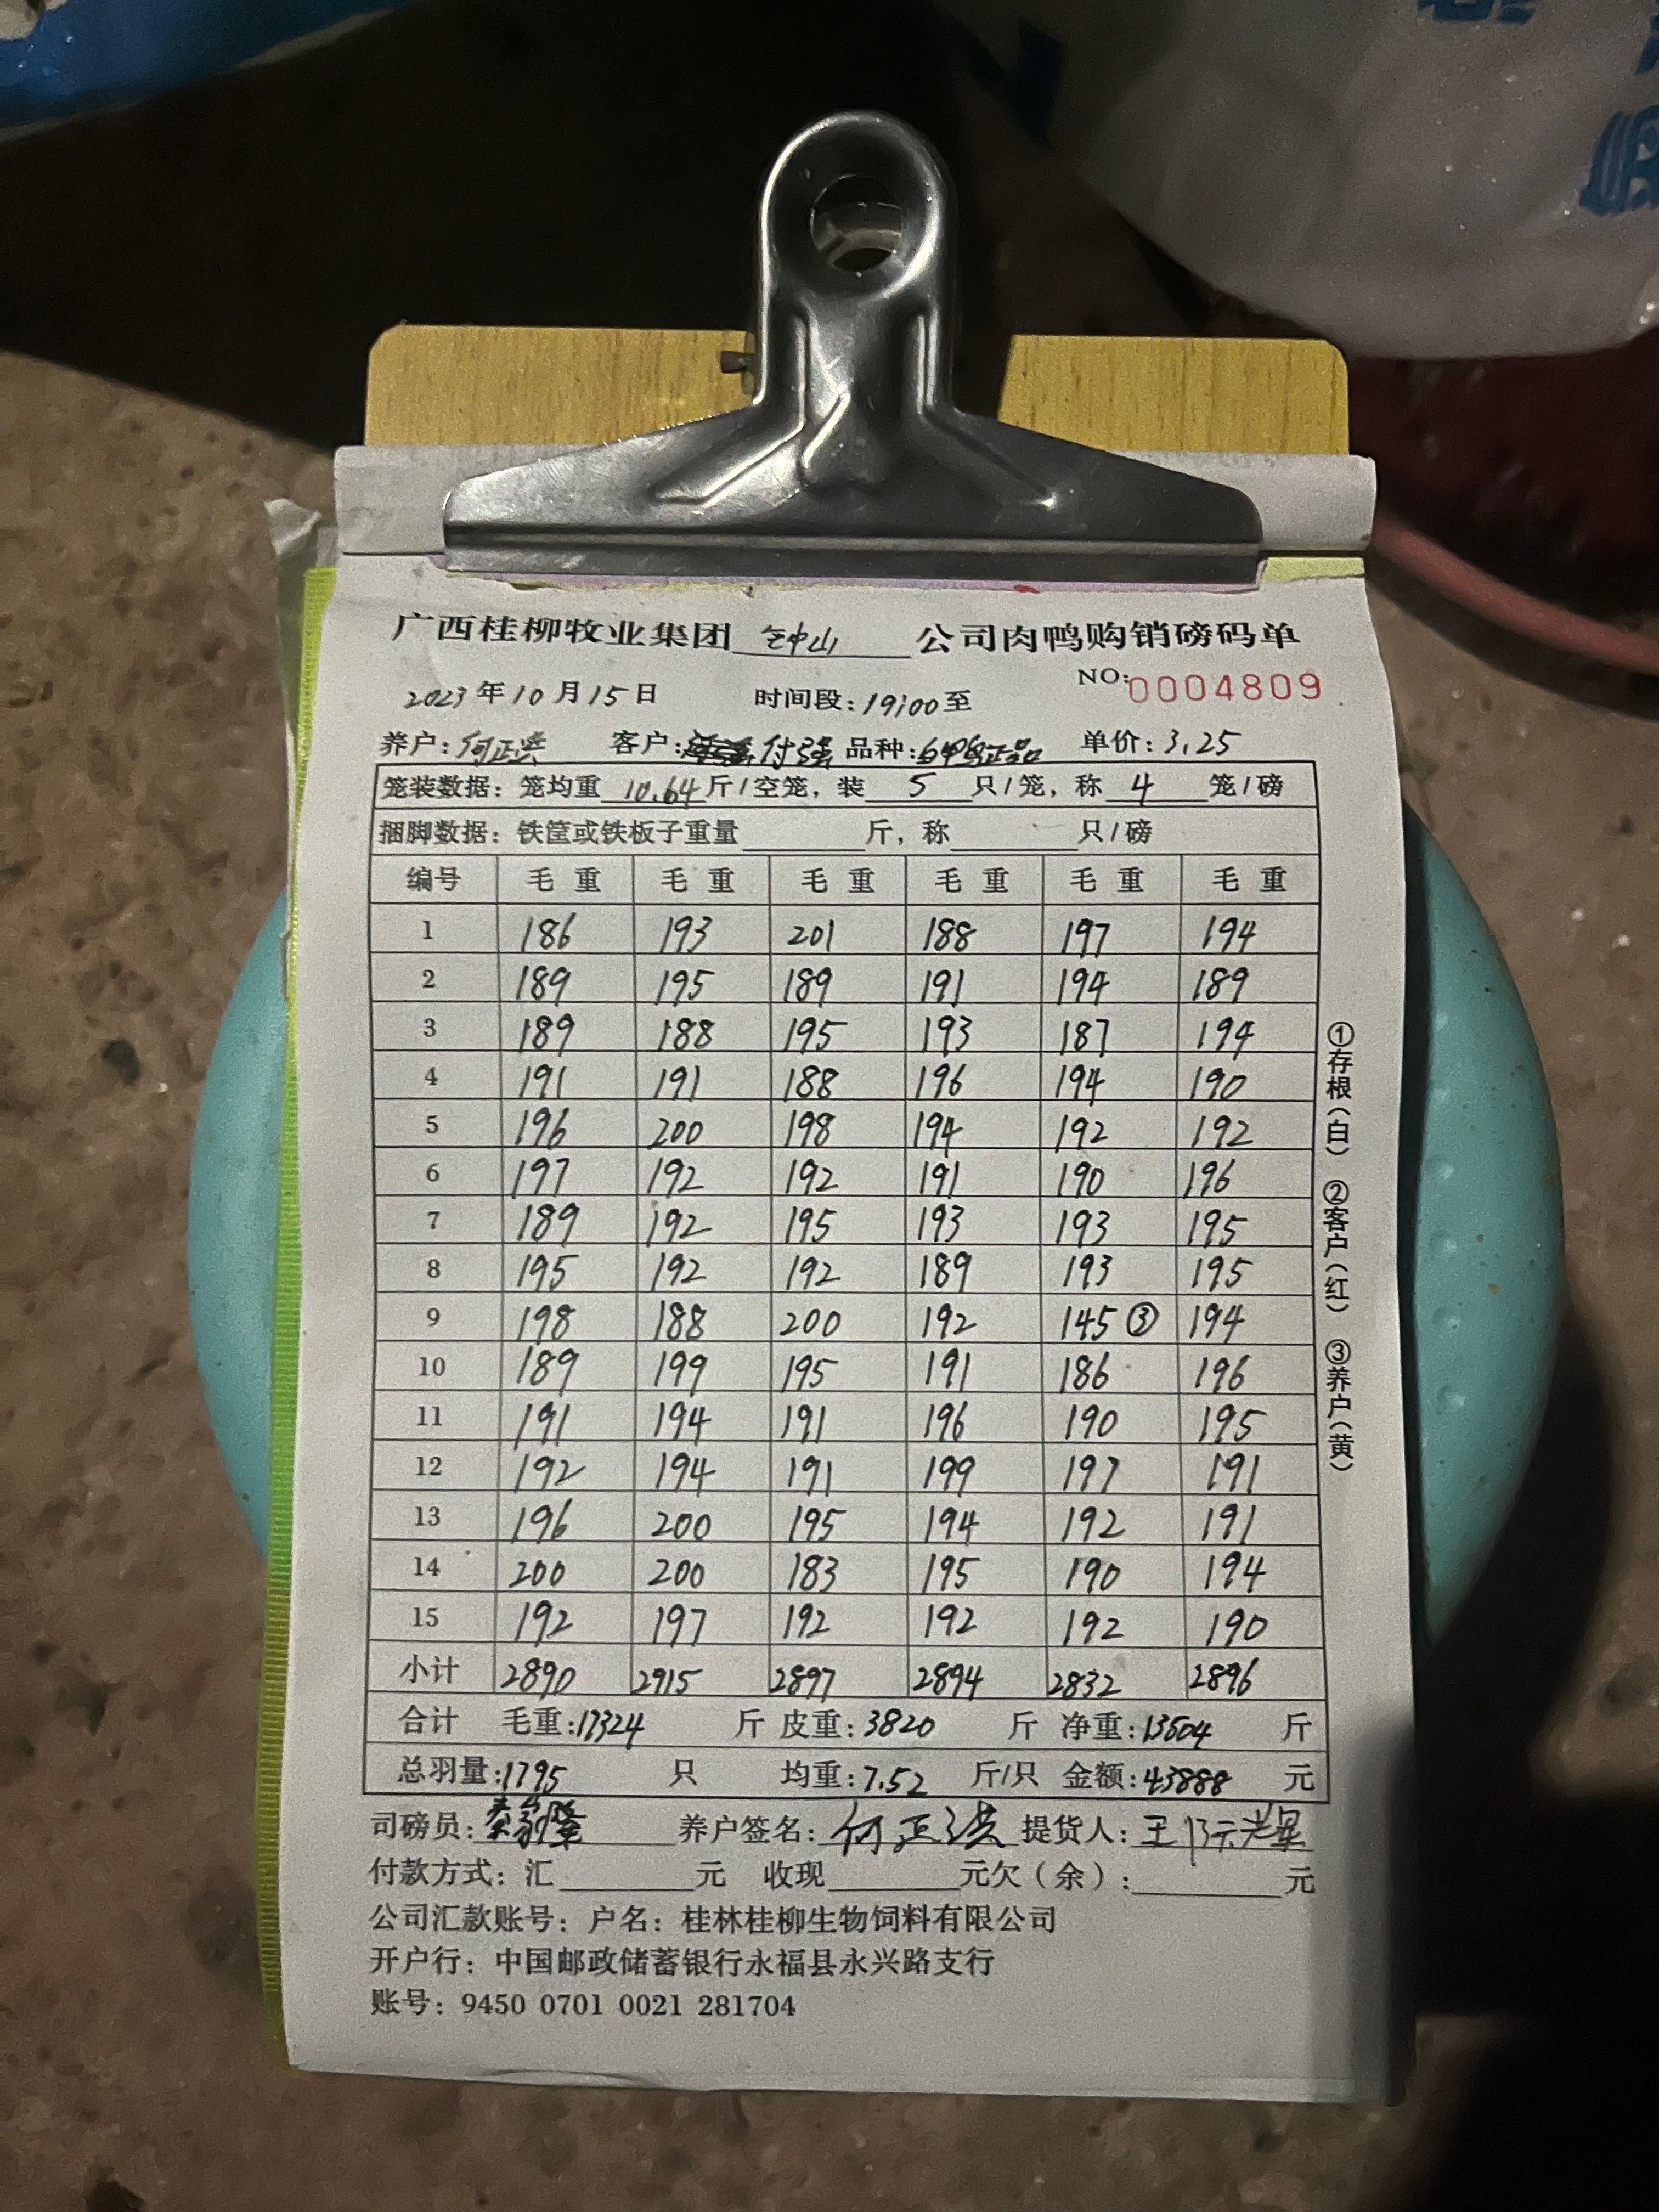 广西桂柳牧业集团 钟山 公司肉鸭购销磅码单
NO:0004809
2023年10月15日 时间段:19:00至
养户:何正洪 客户:付强 品种: 正品 单价:3.25
笼装数据:笼均重10.64斤/空笼,装5只/笼,称4笼/磅
捆脚数据:铁筐或铁板子重量 斤,称 只/磅
编号 毛重 毛重 毛重 毛重 毛重 毛重
1 186 193 201 188 197 194
2 189 195 189 191 194 189
3 189 188 195 193 187 194
4 191 191 188 196 194 190
5 196 200 198 194 192 192
6 197 192 192 191 190 196
7 189 192 195 193 193 195
8 195 192 192 189 193 195
9 198 188 200 192 145③ 194
10 189 199 195 191 186 196
11 191 194 191 196 190 195
12 192 194 191 199 197 191
13 196 200 195 194 192 191
14 200 200 183 195 190 194
15 192 197 192 192 192 190
小计 2890 2915 2897 2894 2832 2896
合计 毛重:17324 斤 皮重:3820 斤 净重:13504 斤
总羽量:1795 只 均重:7.52 斤/只 金额:43888 元
司磅员: 养户签名:何正洪 提货人:王
付款方式:汇 元 收现 元欠(余): 元
公司汇款账号:户名:桂林桂柳生物饲料有限公司
开户行:中国邮政储蓄银行永福县永兴路支行
账号:9450 0701 0021 281704
①存根(白) ②客户(红) ③养户(黄)